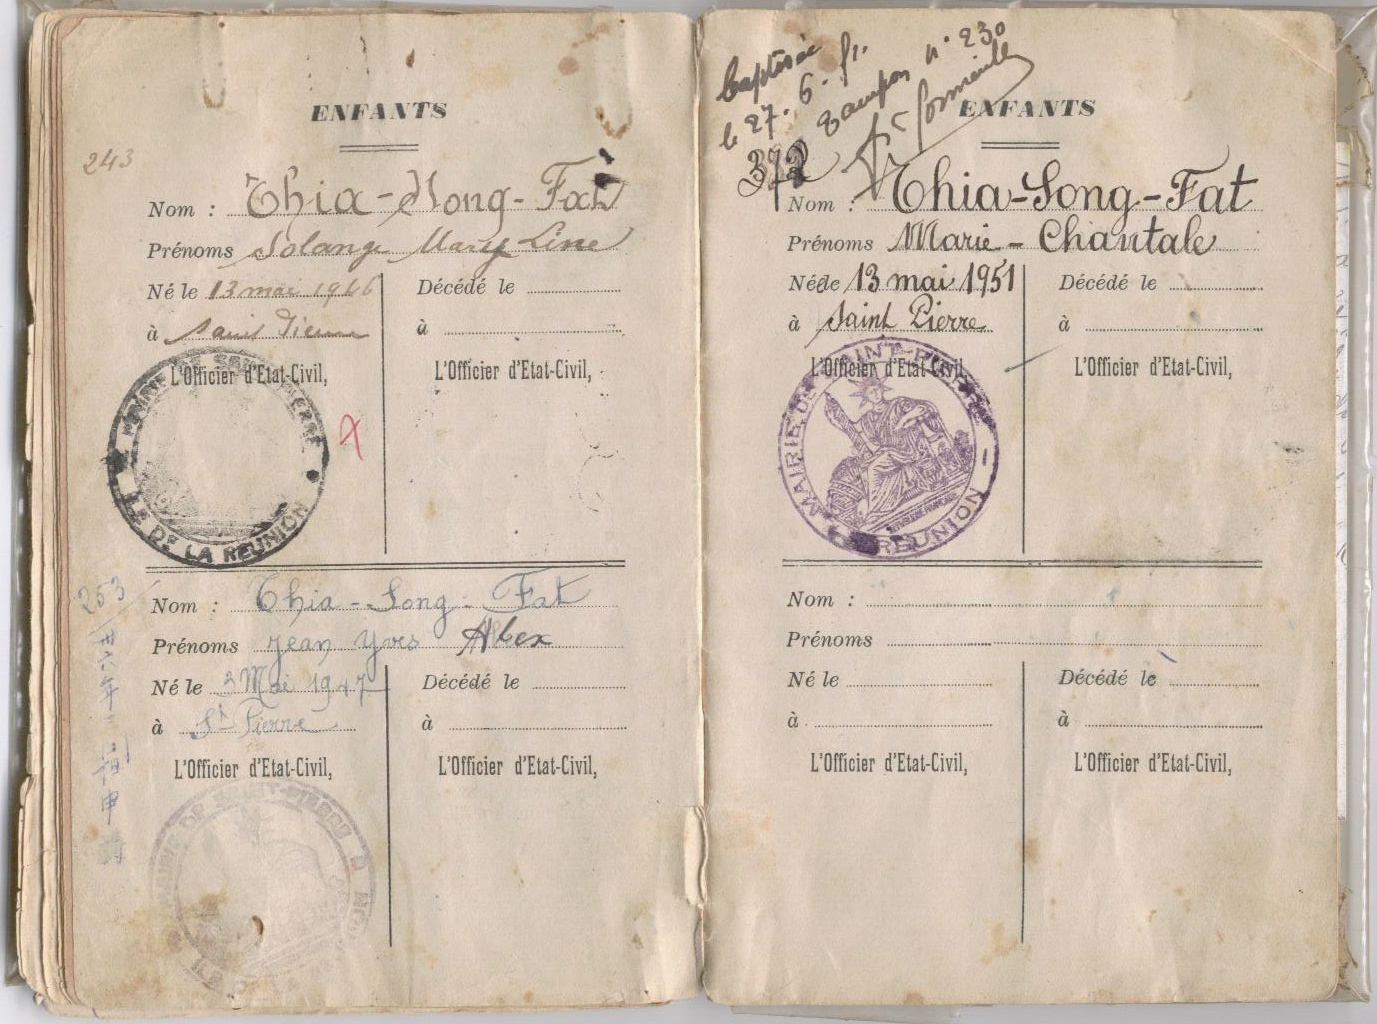 ENFANTS
243
Nom : Thia-Song-Fat
Prénoms Solange Mary Line
Né le 13 mai 1946
Décédé le
à Saint Pierre
à
L'Officier d'Etat-Civil,
L'Officier d'Etat-Civil,
MAIRIE DE SAINT-PIERRE
ILE DE LA REUNION
253
Nom : Thia-Song-Fat
Prénoms Jean Yves Alex
Né le 2 Mai 1947
Décédé le
à St Pierre
à
L'Officier d'Etat-Civil,
L'Officier d'Etat-Civil,
MAIRIE DE SAINT-PIERRE
Baptisée
le 27.6.51.
Tampon n° 230
372
ENFANTS
Nom : Thia-Song-Fat
Prénoms Marie-Chantale
Née le 13 mai 1951
Décédé le
à Saint Pierre
à
L'Officier d'Etat-Civil,
L'Officier d'Etat-Civil,
MAIRIE DE SAINT-PIERRE
REUNION
Nom :
Prénoms
Né le
Décédé le
à
à
L'Officier d'Etat-Civil,
L'Officier d'Etat-Civil,